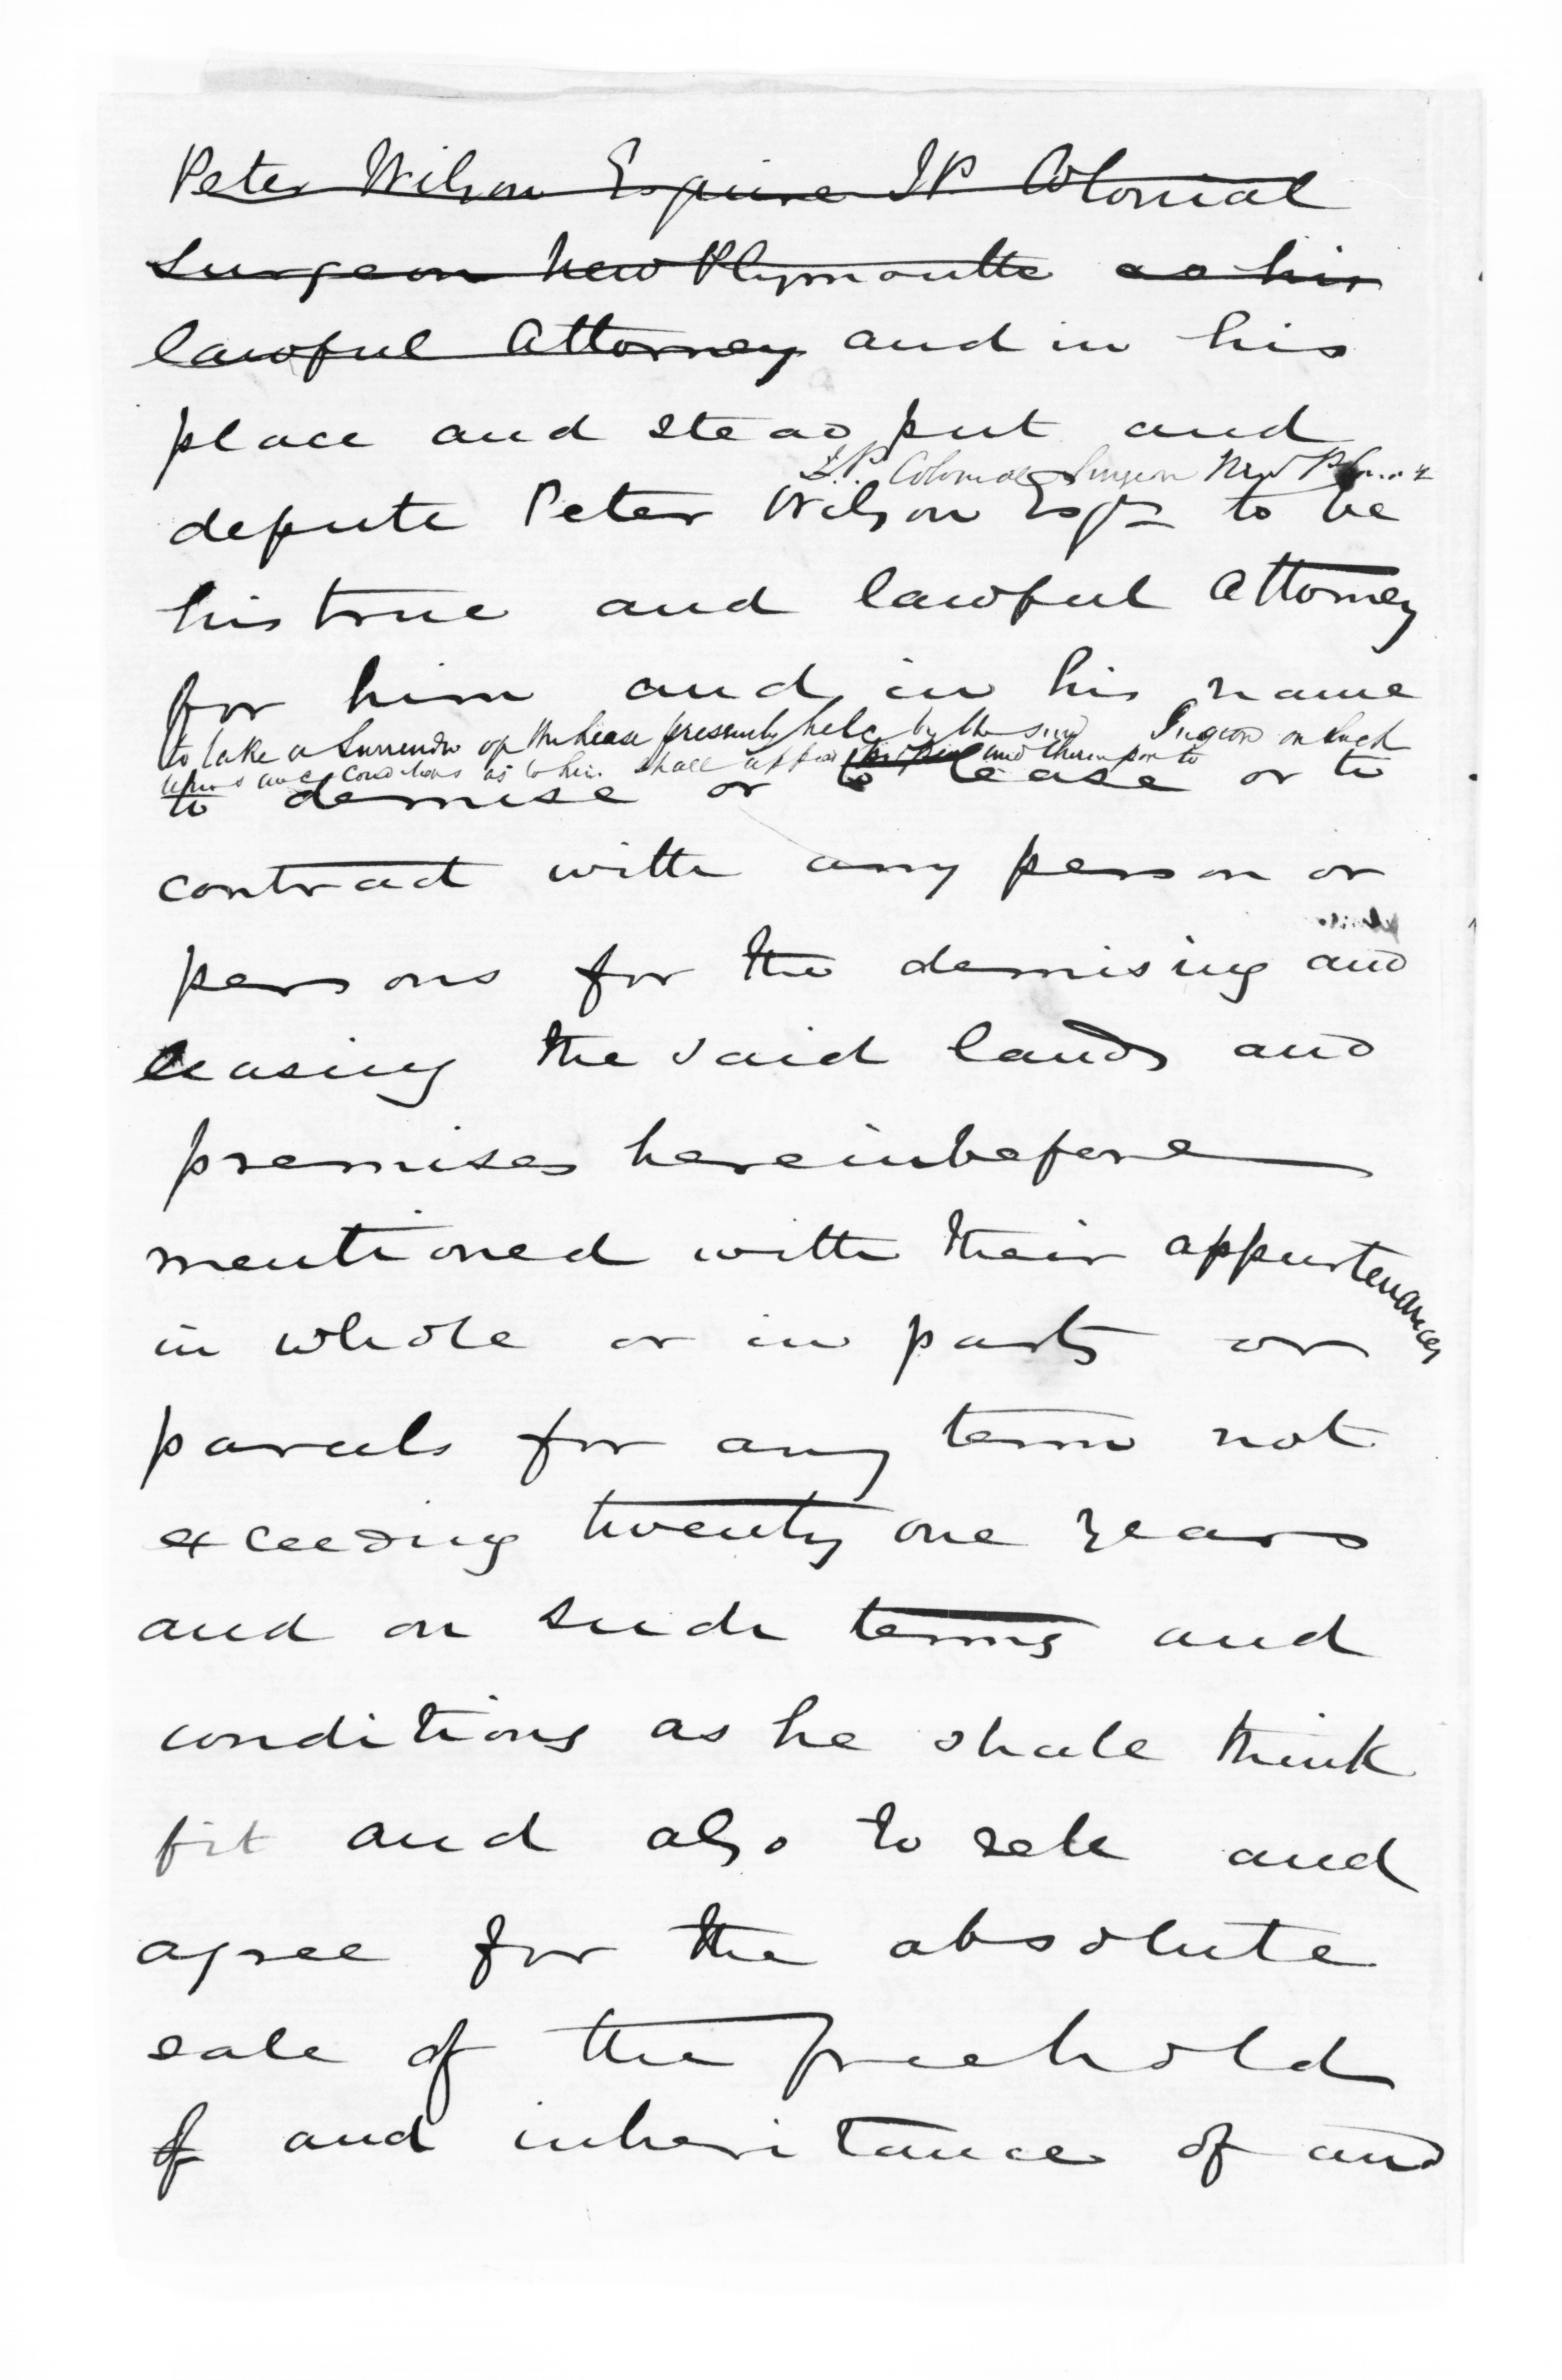 Peter Wilson Esquire JP Colonial
Surgeon New Plymouth as his
lawful Attorney and in his
place and stead put and
J.P. Colonial Surgeon New
depute Peter Wilson Esqre to be
his true and lawful Attorney
for him and in his name
to take a Surrender of the lease presently held by the said on such
terms and conditions as to him shall appear and thereupon to
to demise or to lease or to
contract with any person or
persons for the demising and
leasing the said lands and
premises hereinbefore
mentioned with their appurtenances
in whole or in parts or
parcels for any term not
exceeding twenty one years
and on such terms and
conditions as he shall think
fit and also to sell and
agree for the absolute
sale of the freehold
of and inheritance of and